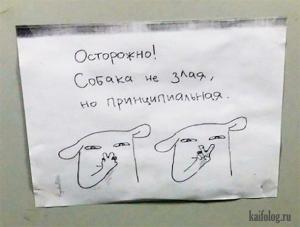 Осторожно!
Собака не злая,
но принципиальная.
kaifolog.ru